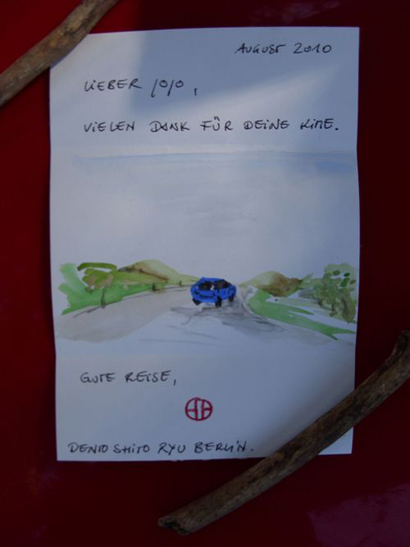 AUGUST 2010
LIEBER JOJO,
VIELEN DANK FÜR DEINE KIME.
GUTE REISE,
DENTO SHITO RYU BERLIN.